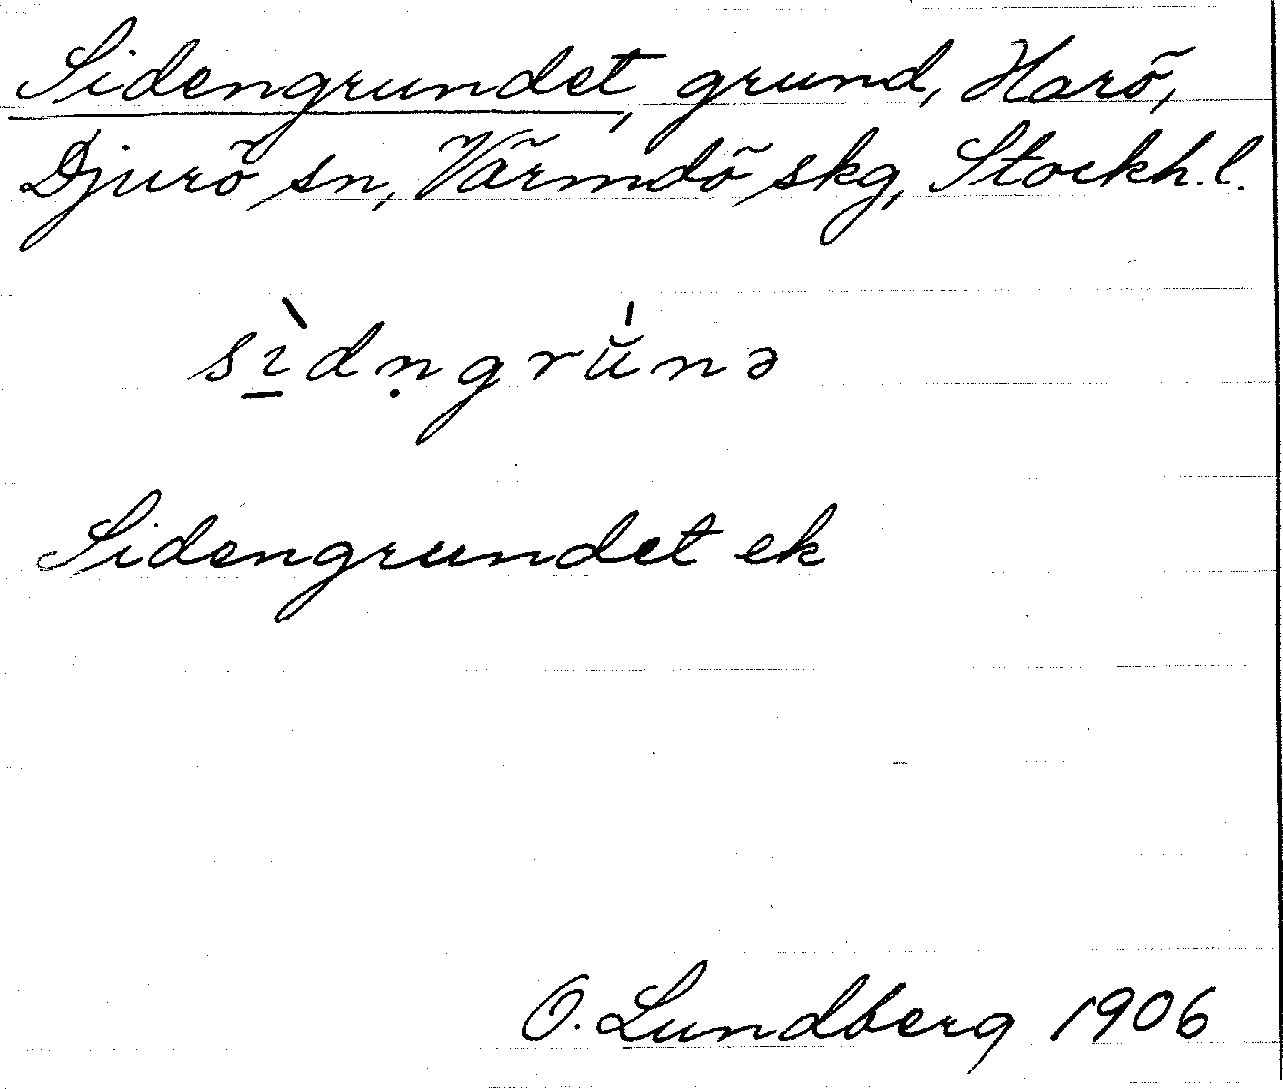 Sidengrundet, grund, Harö,
Djurö sn, Värmdö skg, Stockh.l.
sı̱̀dṇgrŭ́nə
Sidengrundet ek
O. Lundberg 1906